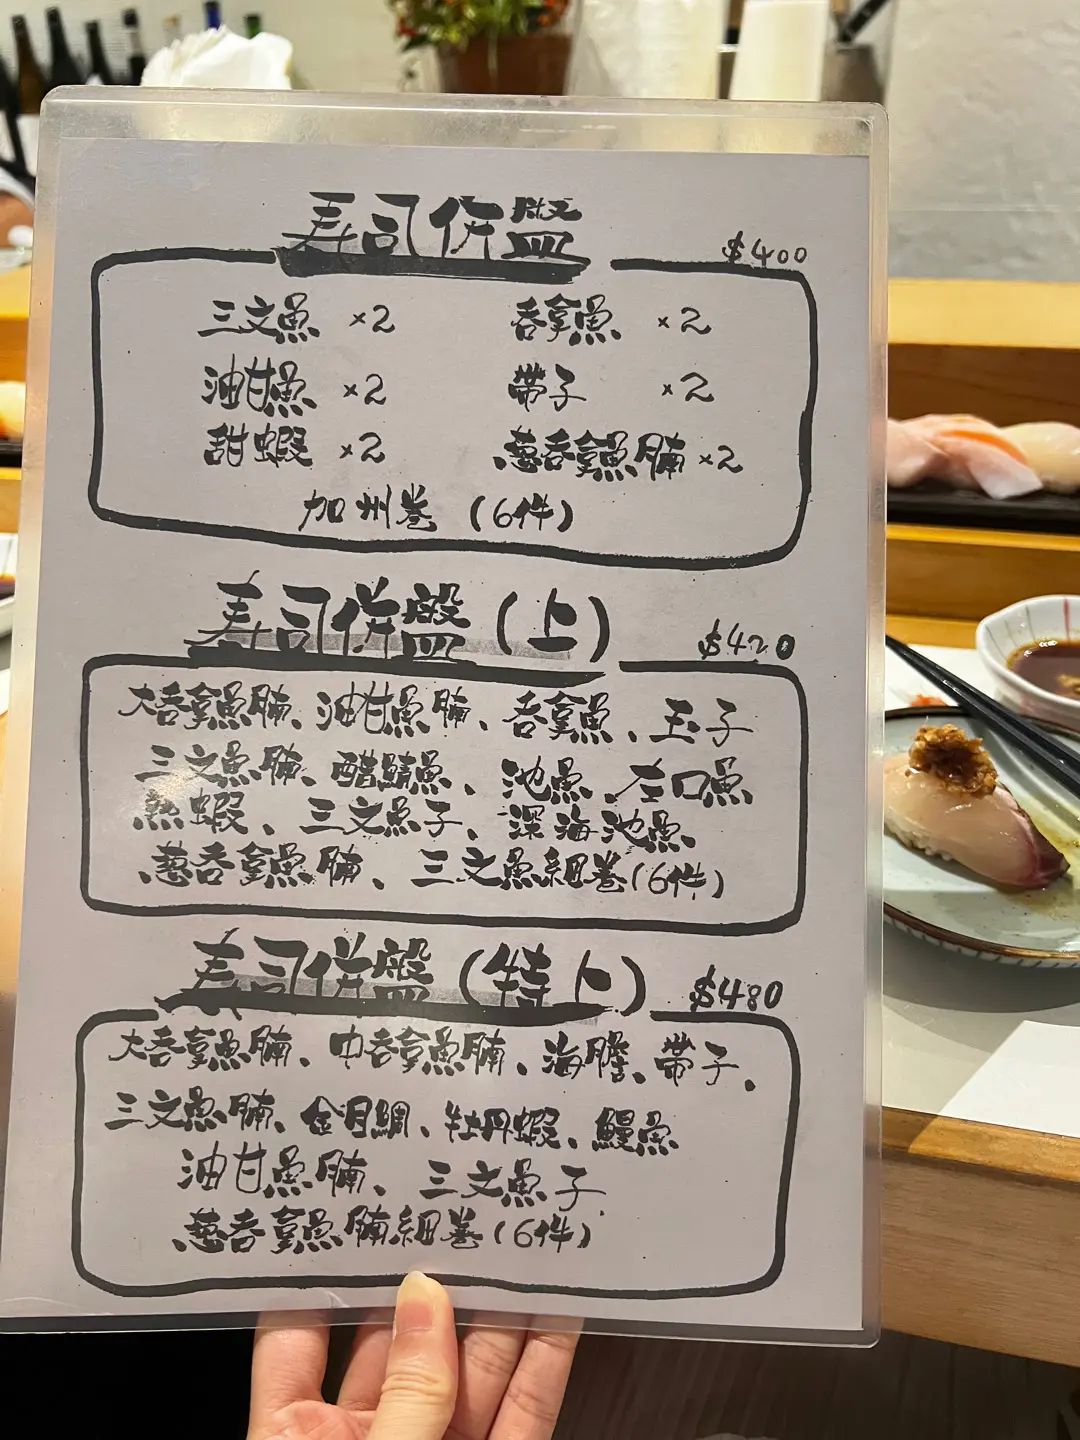 寿司併盤
$400
三文魚 ×2 吞拿魚 ×2
油甘魚 ×2 帶子 ×2
甜蝦 ×2 葱吞拿魚腩 ×2
加州巻 (6件)
寿司併盤 (上)
$420
大吞拿魚腩、油甘魚腩、吞拿魚、玉子
三文魚腩、醋鯖魚、池魚、左口魚
熟蝦、三文魚子、深海池魚、
葱吞拿魚腩、三文魚細巻(6件)
寿司併盤 (特上)
$480
大吞拿魚腩、中吞拿魚腩、海膽、帶子、
三文魚腩、金目鯛、牡丹蝦、鰻魚
油甘魚腩、三文魚子
葱吞拿魚腩細巻(6件)